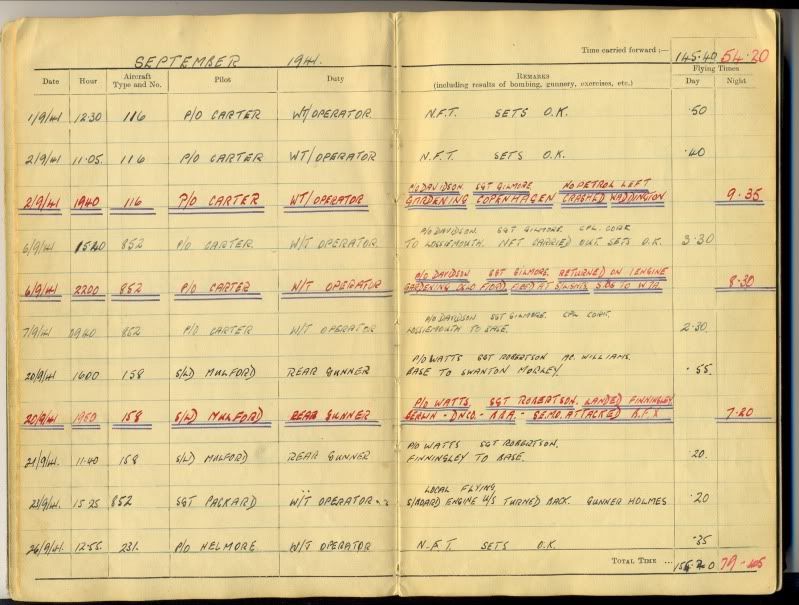 SEPTEMBER 1941.
Time carried forward :— 145.40 54.20
Flying Times
Date Hour Aircraft Type and No. Pilot Duty REMARKS (including results of bombing, gunnery, exercises, etc.) Day Night
1/9/41 12.30 116 P/O CARTER W/T OPERATOR N.F.T. SETS O.K. .50
2/9/41 11.05 116 P/O CARTER W/T OPERATOR N.F.T. SETS O.K. .40
P/O DAVIDSON SGT GILMORE NO PETROL LEFT
2/9/41 1940 116 P/O CARTER W/T OPERATOR GARDENING COPENHAGEN CRASHED WADDINGTON 9.35
P/O DAVIDSON. SGT GILMORE. CPL. CORK
6/9/41 1520 852 P/O CARTER W/T OPERATOR TO LOSSIEMOUTH. NFT CARRIED OUT. SETS O.K. 3.30
P/O DAVIDSON SGT GILMORE. RETURNED ON 1 ENGINE
6/9/41 2200 852 P/O CARTER W/T OPERATOR GARDENING OSLO FIORD. TO W/T. 8.30
P/O DAVIDSON SGT GILMORE. CPL CORK.
7/9/41 0940 852 P/O CARTER W/T OPERATOR LOSSIEMOUTH TO BASE. 2.30.
P/O WATTS SGT ROBERTSON MC. WILLIAMS.
20/9/41 1600 158 S/LD MULFORD REAR GUNNER BASE TO SWANTON MORLEY .55.
P/O WATTS, SGT ROBERTSON. LANDED FINNINGLEY
20/9/41 1950 158 S/LD MULFORD REAR GUNNER BERLIN - DNCO. - - S.E.M.O. ATTACKED 7.20
P/O WATTS SGT ROBERTSON.
21/9/41. 11.40 158 S/LD MULFORD REAR GUNNER FINNINGLEY TO BASE. .20.
LOCAL FLYING
23/9/41 15.25 852 SGT PACKARD W/T OPERATOR. S/BOARD ENGINE U/S TURNED BACK. GUNNER HOLMES .20
26/9/41. 12.55. 231. P/O HELMORE W/T OPERATOR N.F.T. SETS O.K. .35
TOTAL TIME ...